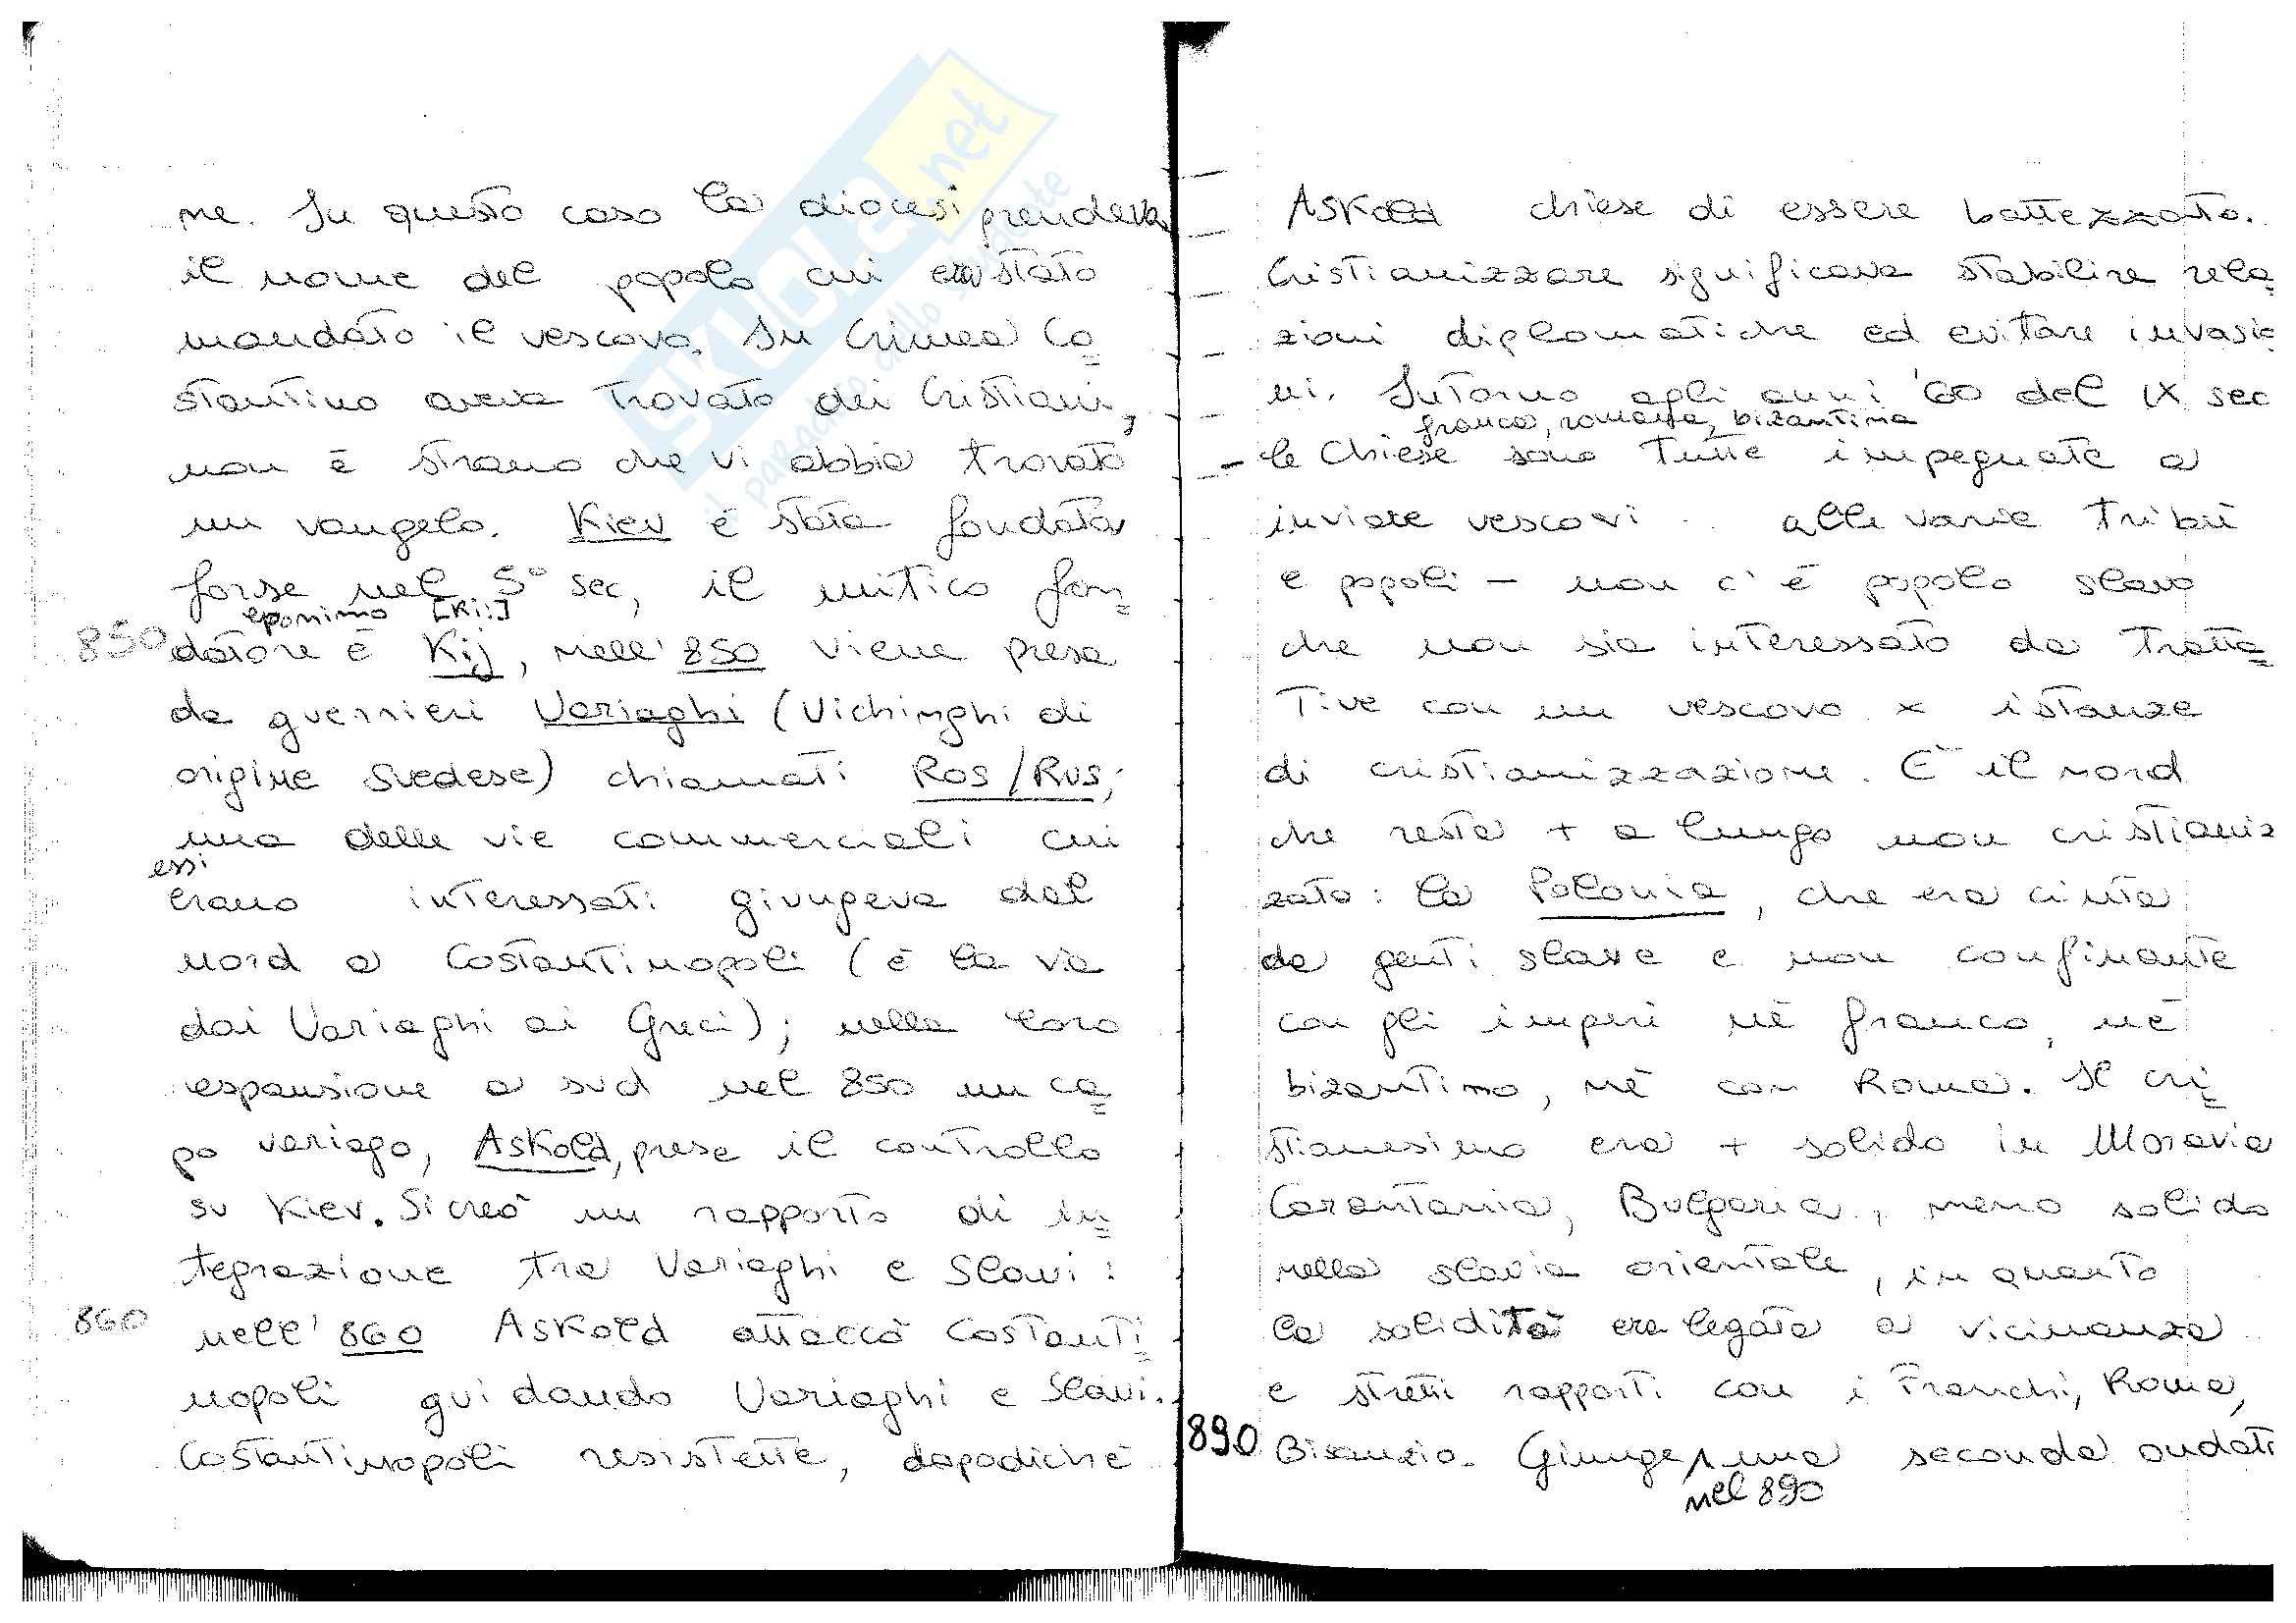 me. In questo caso la diocesi prendeva
il nome del popolo cui era stato
mandato il vescovo. In Crimea Co=
stantino aveva trovato dei Cristiani,
non è strano che vi abbia trovato
un vangelo. Kiev è stata fondata
forse nel 5° sec, il mitico fon=
eponimo [Kii]
850 datore è Kij, nell'850 viene presa
da guerrieri Variaghi (Vichinghi di
origine svedese) chiamati Ros/Rus;
una delle vie commerciali cui
essi
erano interessati giungeva dal
nord a Costantinopoli (è la via
dai Variaghi ai Greci); nella loro
espansione a sud nel 850 un ca=
po variago, Askold, prese il controllo
su Kiev. Si creò un rapporto di in=
tegrazione tra Variaghi e Slavi:
860 nell'860 Askold attaccò Costanti=
nopoli guidando Variaghi e Slavi.
Costantinopoli resistette, dopodiché
Askold chiese di essere battezzato.
Cristianizzare significava stabilire rela=
zioni diplomatiche ed evitare invasio
ni. Intorno agli anni '60 del IX sec
franca, romana, bizantina
- le Chiese sono tutte impegnate a
inviare vescovi alle varie tribù
e popoli - non c'è popolo slavo
che non sia interessato da tratta=
tive con un vescovo x istanze
di cristianizzazione. È il nord
che resta + a lungo non cristianiz
zato: la Polonia, che era cinta
da genti slave e non confinante
con gli imperi né franco, né
bizantino, né con Roma. Il cri=
stianesimo era + solido in Moravia
Carantania, Bulgaria, meno solido
nella slavia orientale, in quanto
la solidità era legata a vicinanza
e stretti rapporti con i Franchi, Roma,
890 Bisanzio. Giunge una seconda ondata
nel 890
SKUOLA.net
il paradiso dello studente